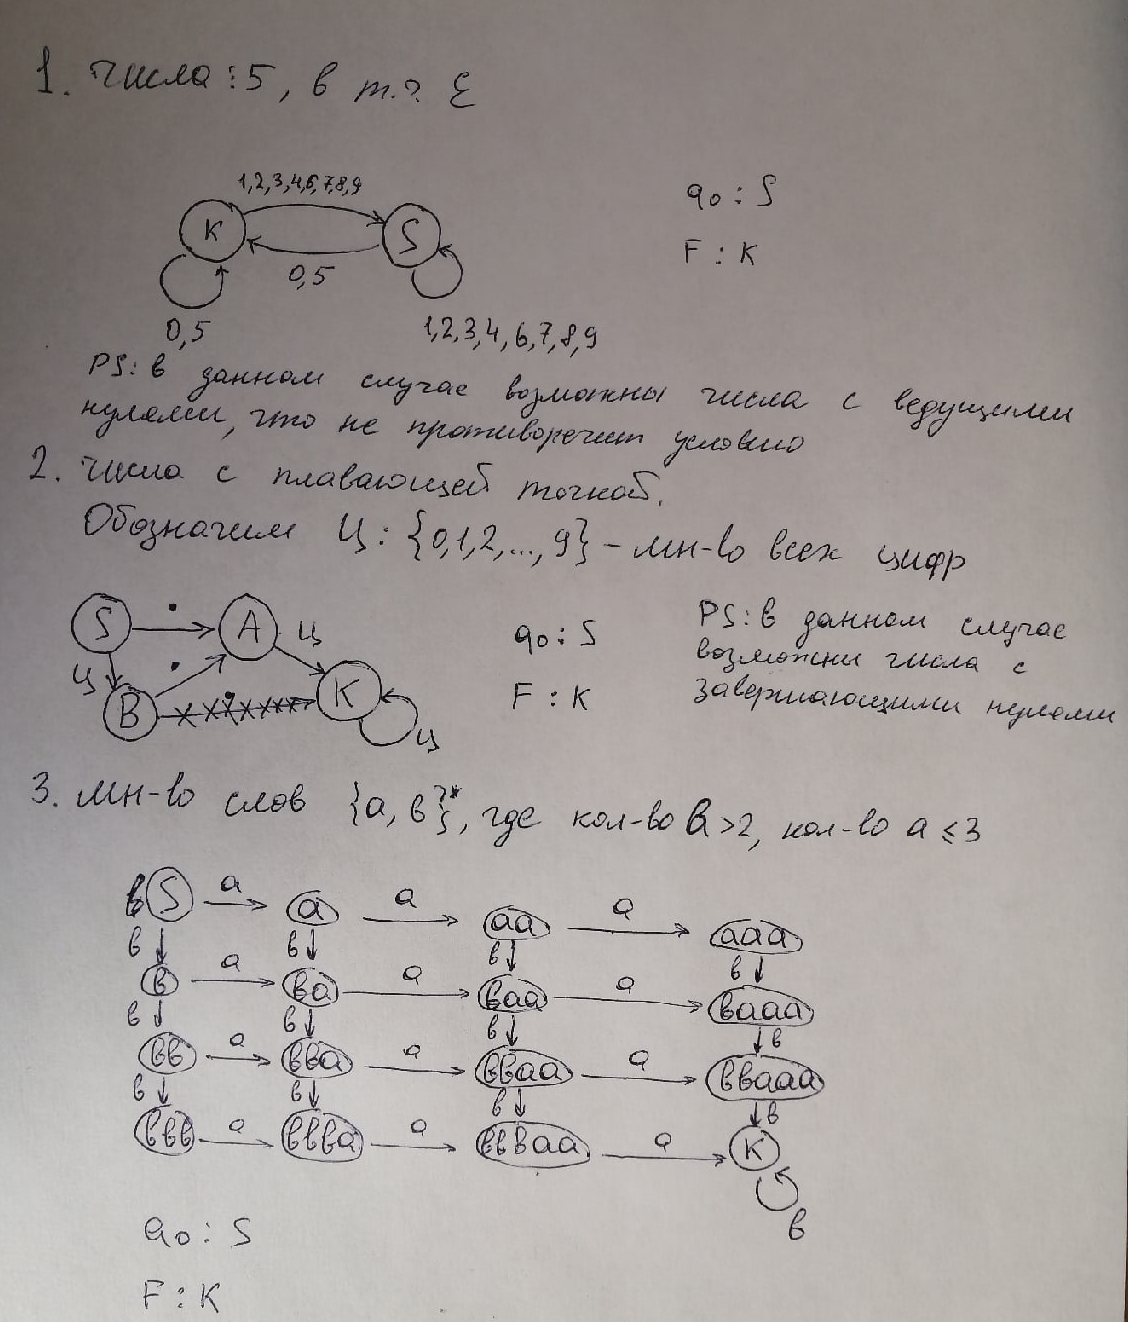 1. Числа ⋮5, в т.ч. ε
1,2,3,4,6,7,8,9
K
S
0,5
0,5
1,2,3,4,6,7,8,9
q0 : S
F : K
PS: в данном случае возможны числа с ведущими
нулями, что не противоречит условию
2. Числа с плавающей точкой.
Обозначим Ц: {0,1,2,...,9} - мн-во всех цифр
S . A Ц
Ц . B K Ц
q0 : S
F : K
PS: в данном случае
возможны числа с
завершающими нулями
3. мн-во слов {a, в}*, где кол-во в >2, кол-во a ≤ 3
S a a a aa a aaa
в в в в
в a вa a вaa a вaaa
в в в в
вв a ввa a ввaa a ввaaa
в в в в
ввв a вввa a вввaa a K
в
q0 : S
F : K